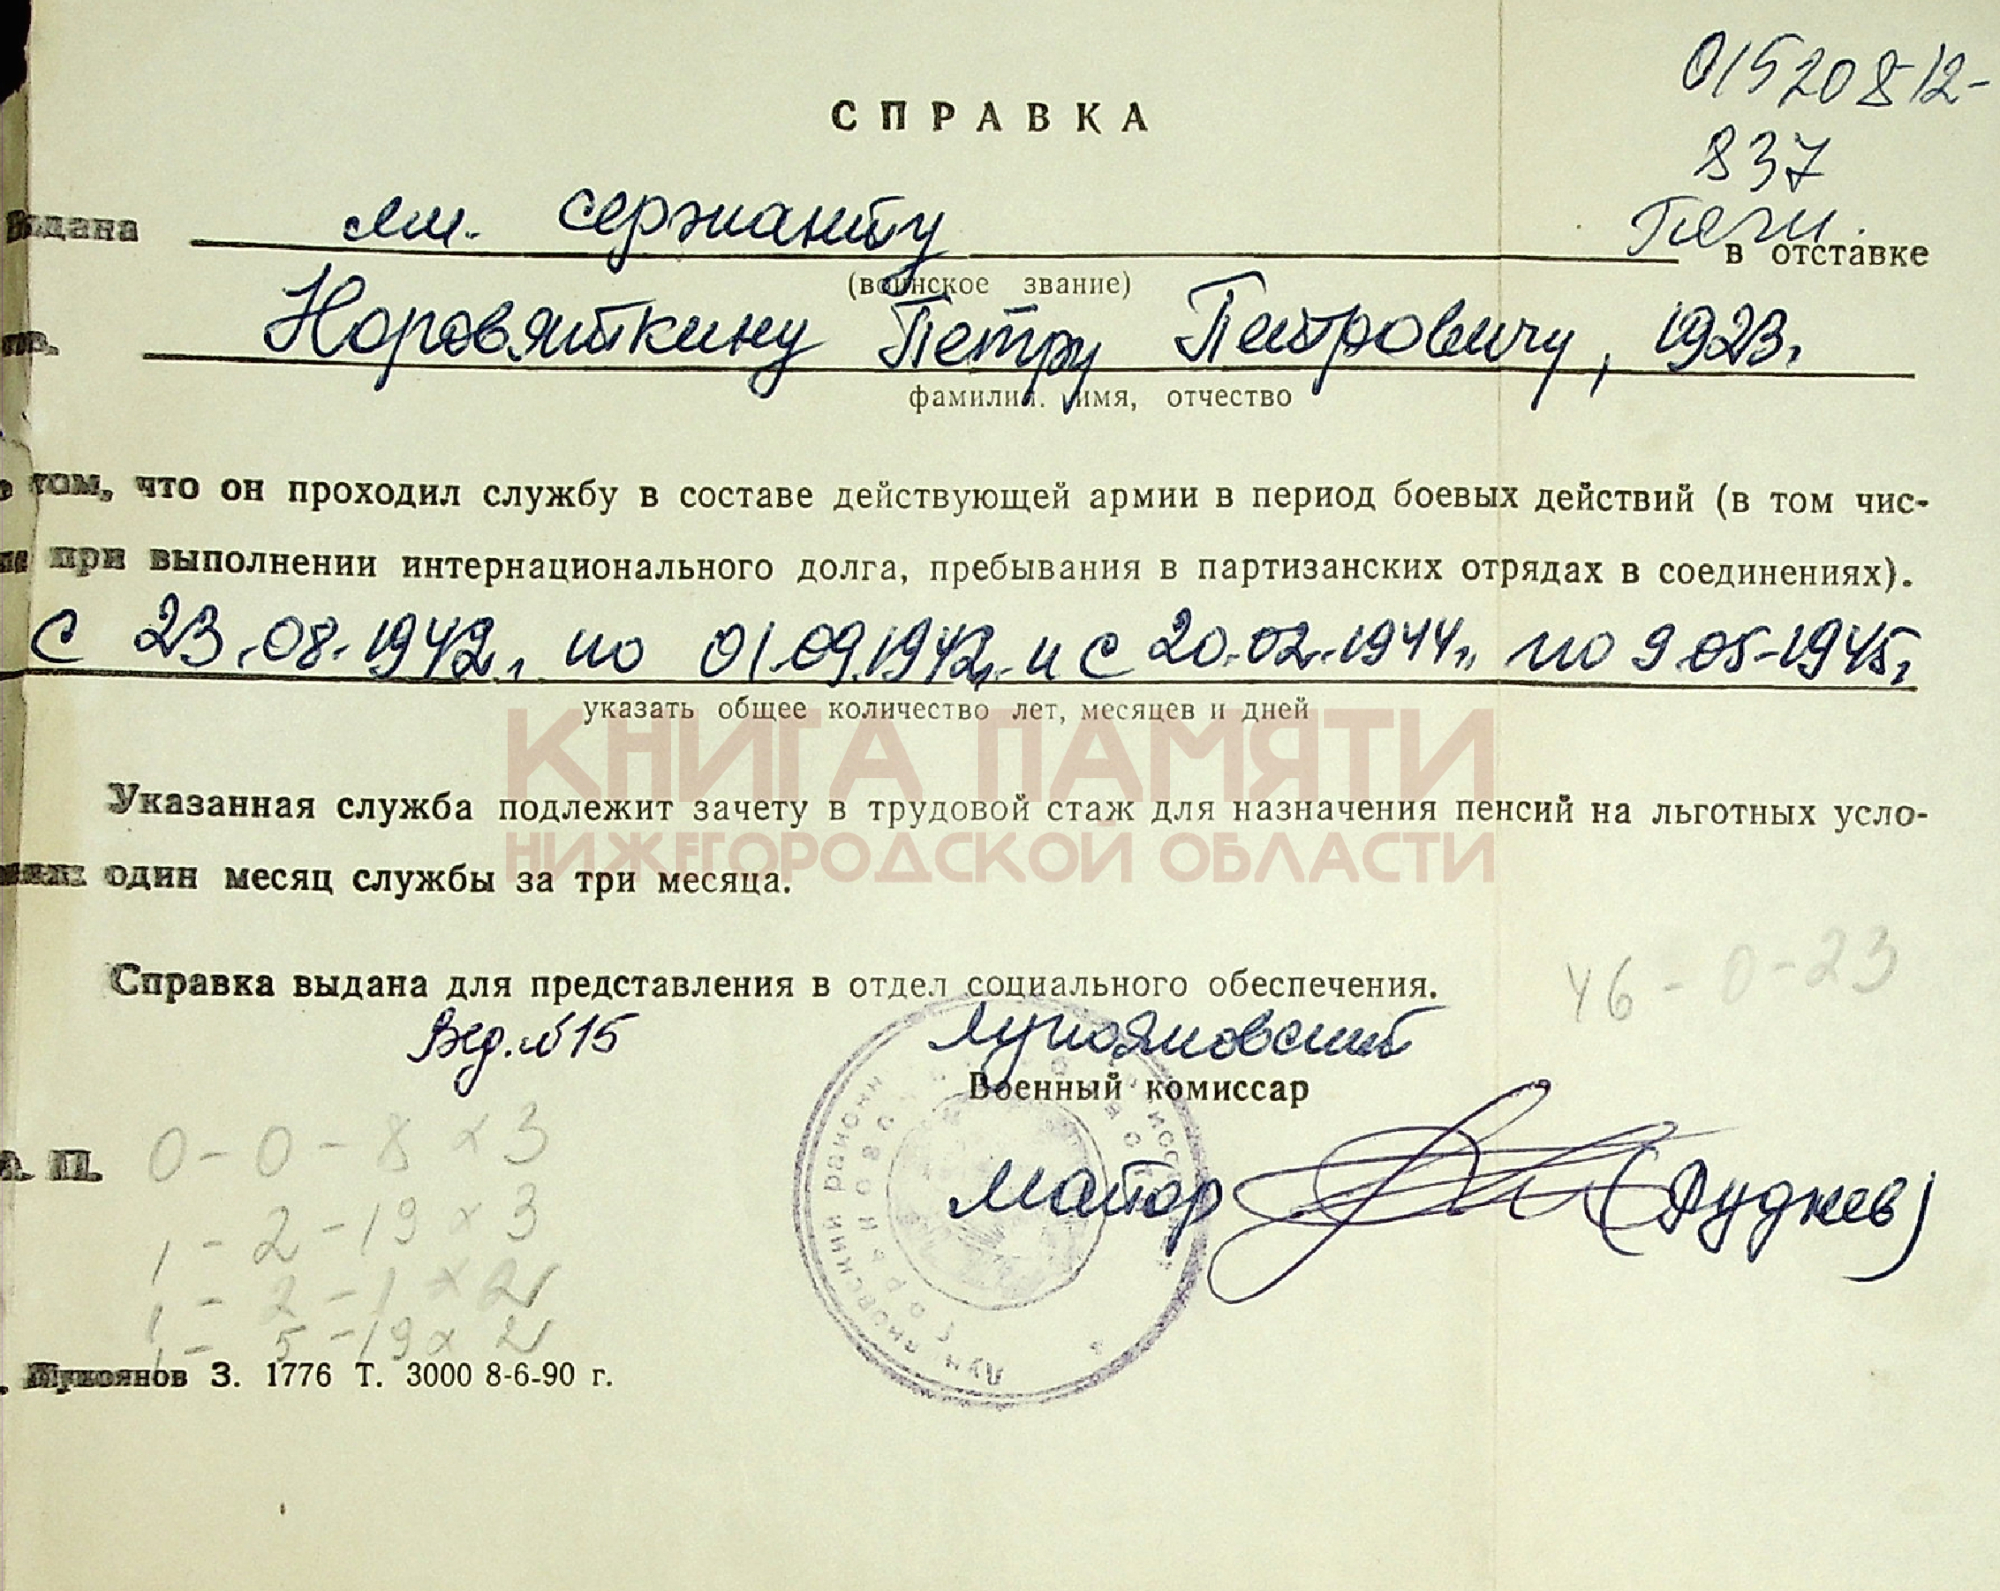 015208-12-
837
СПРАВКА
Выдана мл. сержанту в отставке
(воинское звание)
Норовяткину Петру Петровичу, 1923г.
фамилия, имя, отчество
о том, что он проходил службу в составе действующей армии в период боевых действий (в том чис-
ле при выполнении интернационального долга, пребывания в партизанских отрядах в соединениях).
с 23.08.1942г. по 01.09.1942г. и с 20.02.1944г. по 9.05-1945г.
указать общее количество лет, месяцев и дней
КНИГА ПАМЯТИ
НИЖЕГОРОДСКОЙ ОБЛАСТИ
Указанная служба подлежит зачету в трудовой стаж для назначения пенсий на льготных усло-
виях один месяц службы за три месяца.
Справка выдана для представления в отдел социального обеспечения.
46-0-23
Вед. №15
Лукояновский
Военный комиссар
0-0-8 x 3
М. П.
майор
1-2-19 x 3
1-2-1 x 2
1-5-19 x 2
Лукоянов З. 1776 Т. 3000 8-6-90 г.